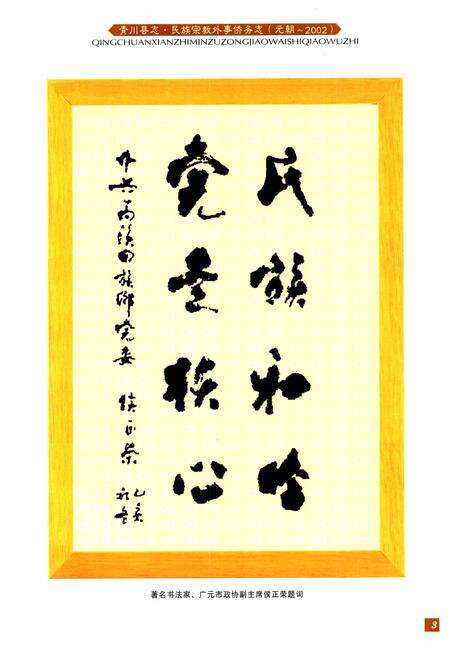 青川县志·民族宗教外事侨务志（元朝～2002）
QINGCHUANXIANZHIMINZUZONGJIAOWAISHIQIAOWUZHI
民族和睦
党是核心
中共蒿溪回族乡党委 侯正荣
乙亥
著名书法家、广元市政协副主席侯正荣题词
3